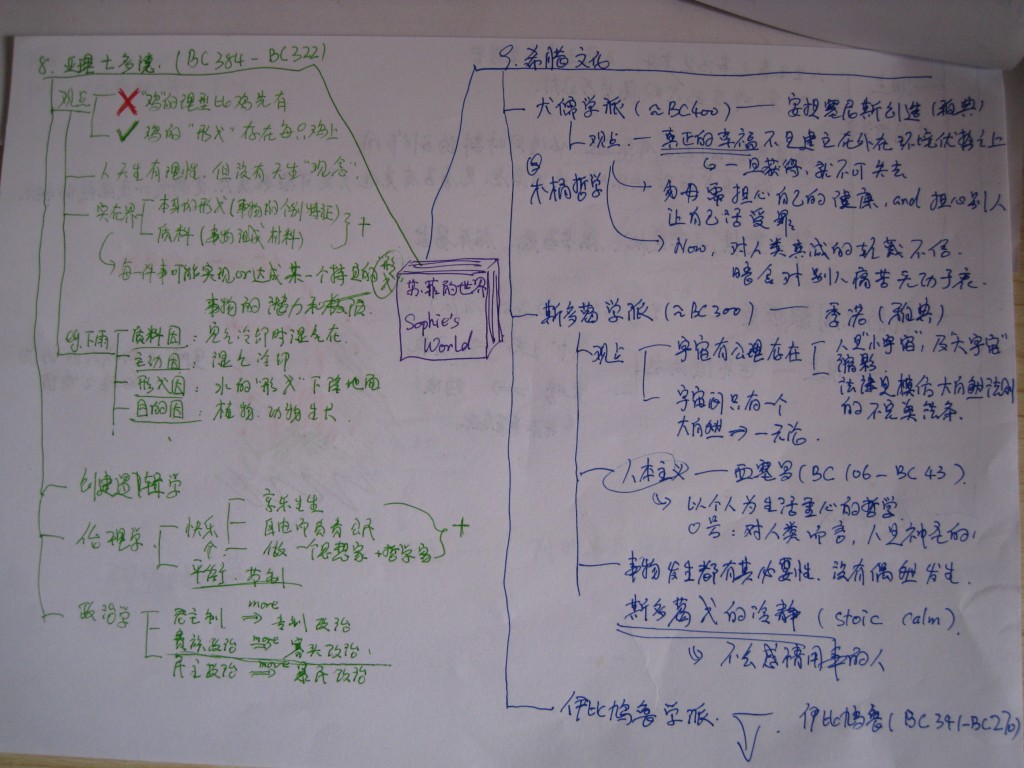 8. 亚理士多德. (BC384-BC322)
观点
"鸡"的理型比鸡先有
鸡的"形式"存在每只鸡上
人天生有理性, 但没有天生"观念".
实在界
本身的形式(事物的个别特征)
质料(事物组成材料)
+
每一件事可能实现or达成某一个特定的形式
事物的潜力和极限
天下雨
质料因: 完气冷却时湿气在.
主动因: 湿气冷却
形式因: 水的"形式"下降地面
目的因: 植物. 动物生长.
创建逻辑学
伦理学
快乐
享乐生活
自由而负责公民
做一个思想家+哲学家
+
平衡. 节制
政治学
君主制 more 专制政治
贵族政治 more 寡头政治.
民主政治 more 暴民政治
"苏菲的世界"
Sophie's
World
9. 希腊文化
犬儒学派(≈BC400) — 安提塞尼斯创造(雅典)
观点 — 真正的幸福不是建立在外在环境优势之上
一旦获得, 就不可失去
木桶哲学
勿毋需担心自己的健康. and 担心别人
让自己活受罪
Now, 对人类真诚的轻蔑不信.
暗含对别人痛苦无动于衷.
斯多葛学派(≈BC300) — 季诺(雅典)
观点
宇宙有公理存在
人是"小宇宙", 乃大宇宙"
缩影.
法律是模仿大自然法则
的不完美法条.
宇宙间只有一个
大自然 ⇒ 一元论.
人本主义 — 西塞罗(BC106-BC43).
以个人为生活重心的哲学
口号: 对人类而言, 人是神圣的.
事物发生都有其必要性. 没有偶然发生.
斯多葛式的冷静 (stoic calm).
不会感情用事的人
伊比鸠鲁学派. 伊比鸠鲁(BC341-BC270)